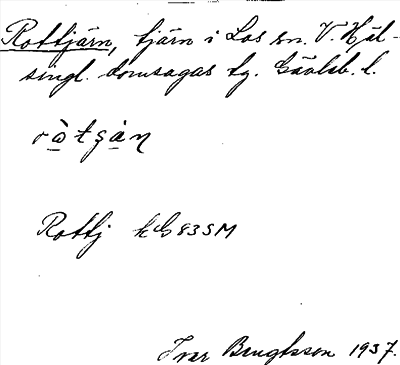 Rottjärn, tjärn i Los sn. V. Häl-
singl. domsagas tg. Gävleb. l.
rò̱tʂà̱n
Rottj kG 83 SM
Ivar Bengtsson 1937.